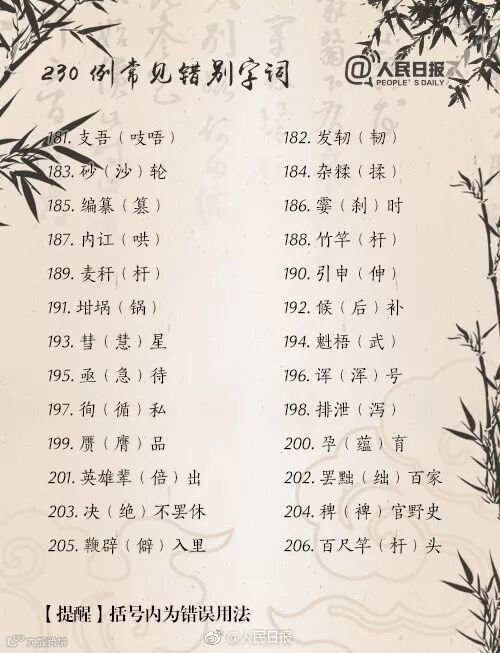 230 例常见错别字词
@人民日报
PEOPLE'S DAILY
181. 支吾（吱唔） 182. 发轫（韧）
183. 砂（沙）轮 184. 杂糅（揉）
185. 编纂（篡） 186. 霎（刹）时
187. 内讧（哄） 188. 竹竿（杆）
189. 麦秆（杆） 190. 引申（伸）
191. 坩埚（锅） 192. 候（后）补
193. 彗（慧）星 194. 魁梧（武）
195. 亟（急）待 196. 诨（浑）号
197. 徇（循）私 198. 排泄（泻）
199. 赝（膺）品 200. 孕（蕴）育
201. 英雄辈（倍）出 202. 罢黜（绌）百家
203. 决（绝）不罢休 204. 稗（裨）官野史
205. 鞭辟（僻）入里 206. 百尺竿（杆）头
【提醒】括号内为错误用法
@人民日报